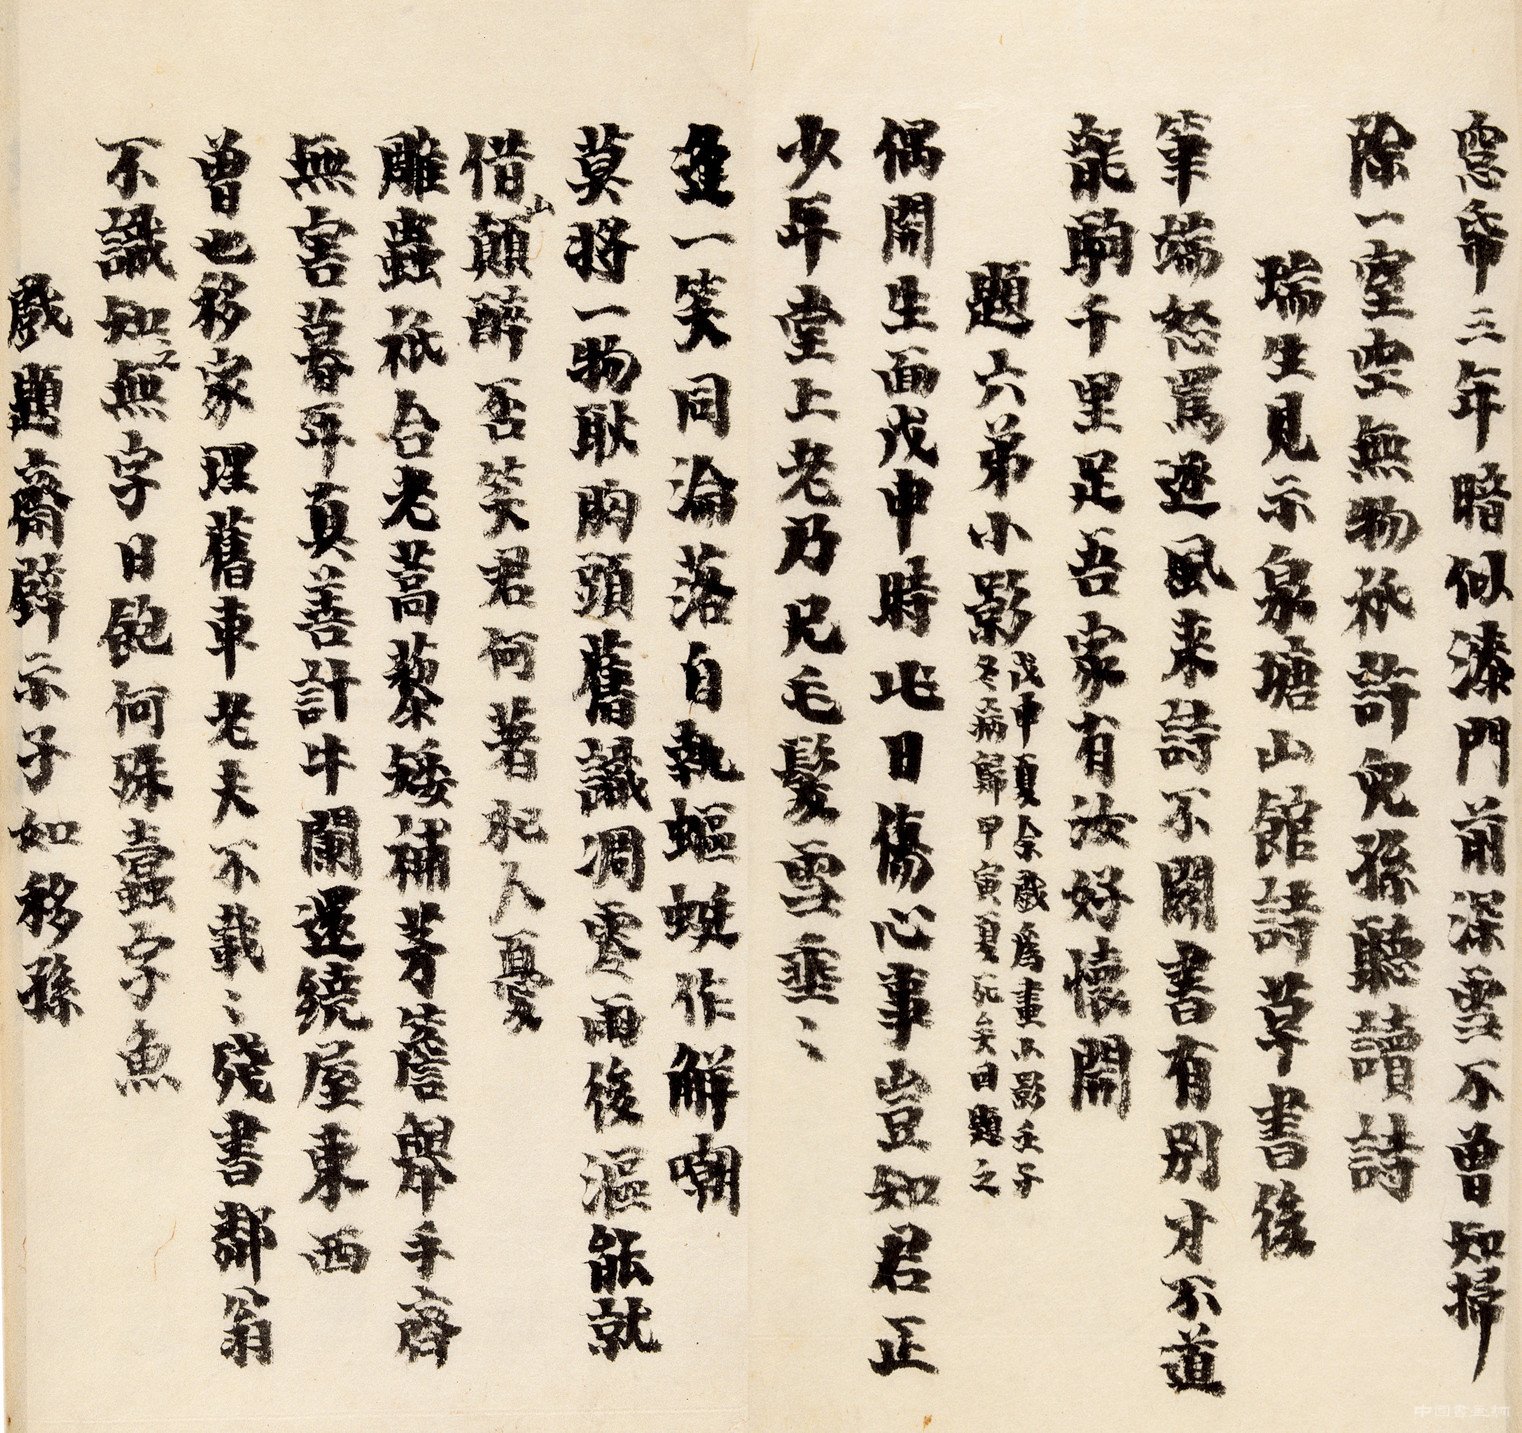 窓幃三年暗似漆門前深雪不曾知掃
除一室空無物祇許兒孫聽讀詩
瑞生見示泉塘山館詩草書後
筆端怒罵逐風來詩不關書有別才不道
龍駒千里足吾家有汝好懷開
題六弟小影戊申夏余戲為畫小影壬子
冬病歸甲寅夏死矣因題之
偶開生面戊申時此日傷心事豈知君正
少年堂上老乃兄毛髮雪垂〻
逢一笑同淪落自執蝘蜓作解嘲
莫將一物耿胸頭舊識凋零兩後漚能就
借山顛醉否笑君何著杞人憂
雕蟲祇合老蒿藜矮補茅簷舉手齊
無害暮年真善計牛闌還繞屋東西
曾也移家理舊車老夫不載〻殘書鄰翁
不識知無字日飽何殊蠹字魚
戲題齋壁示子如移孫
中国書画網